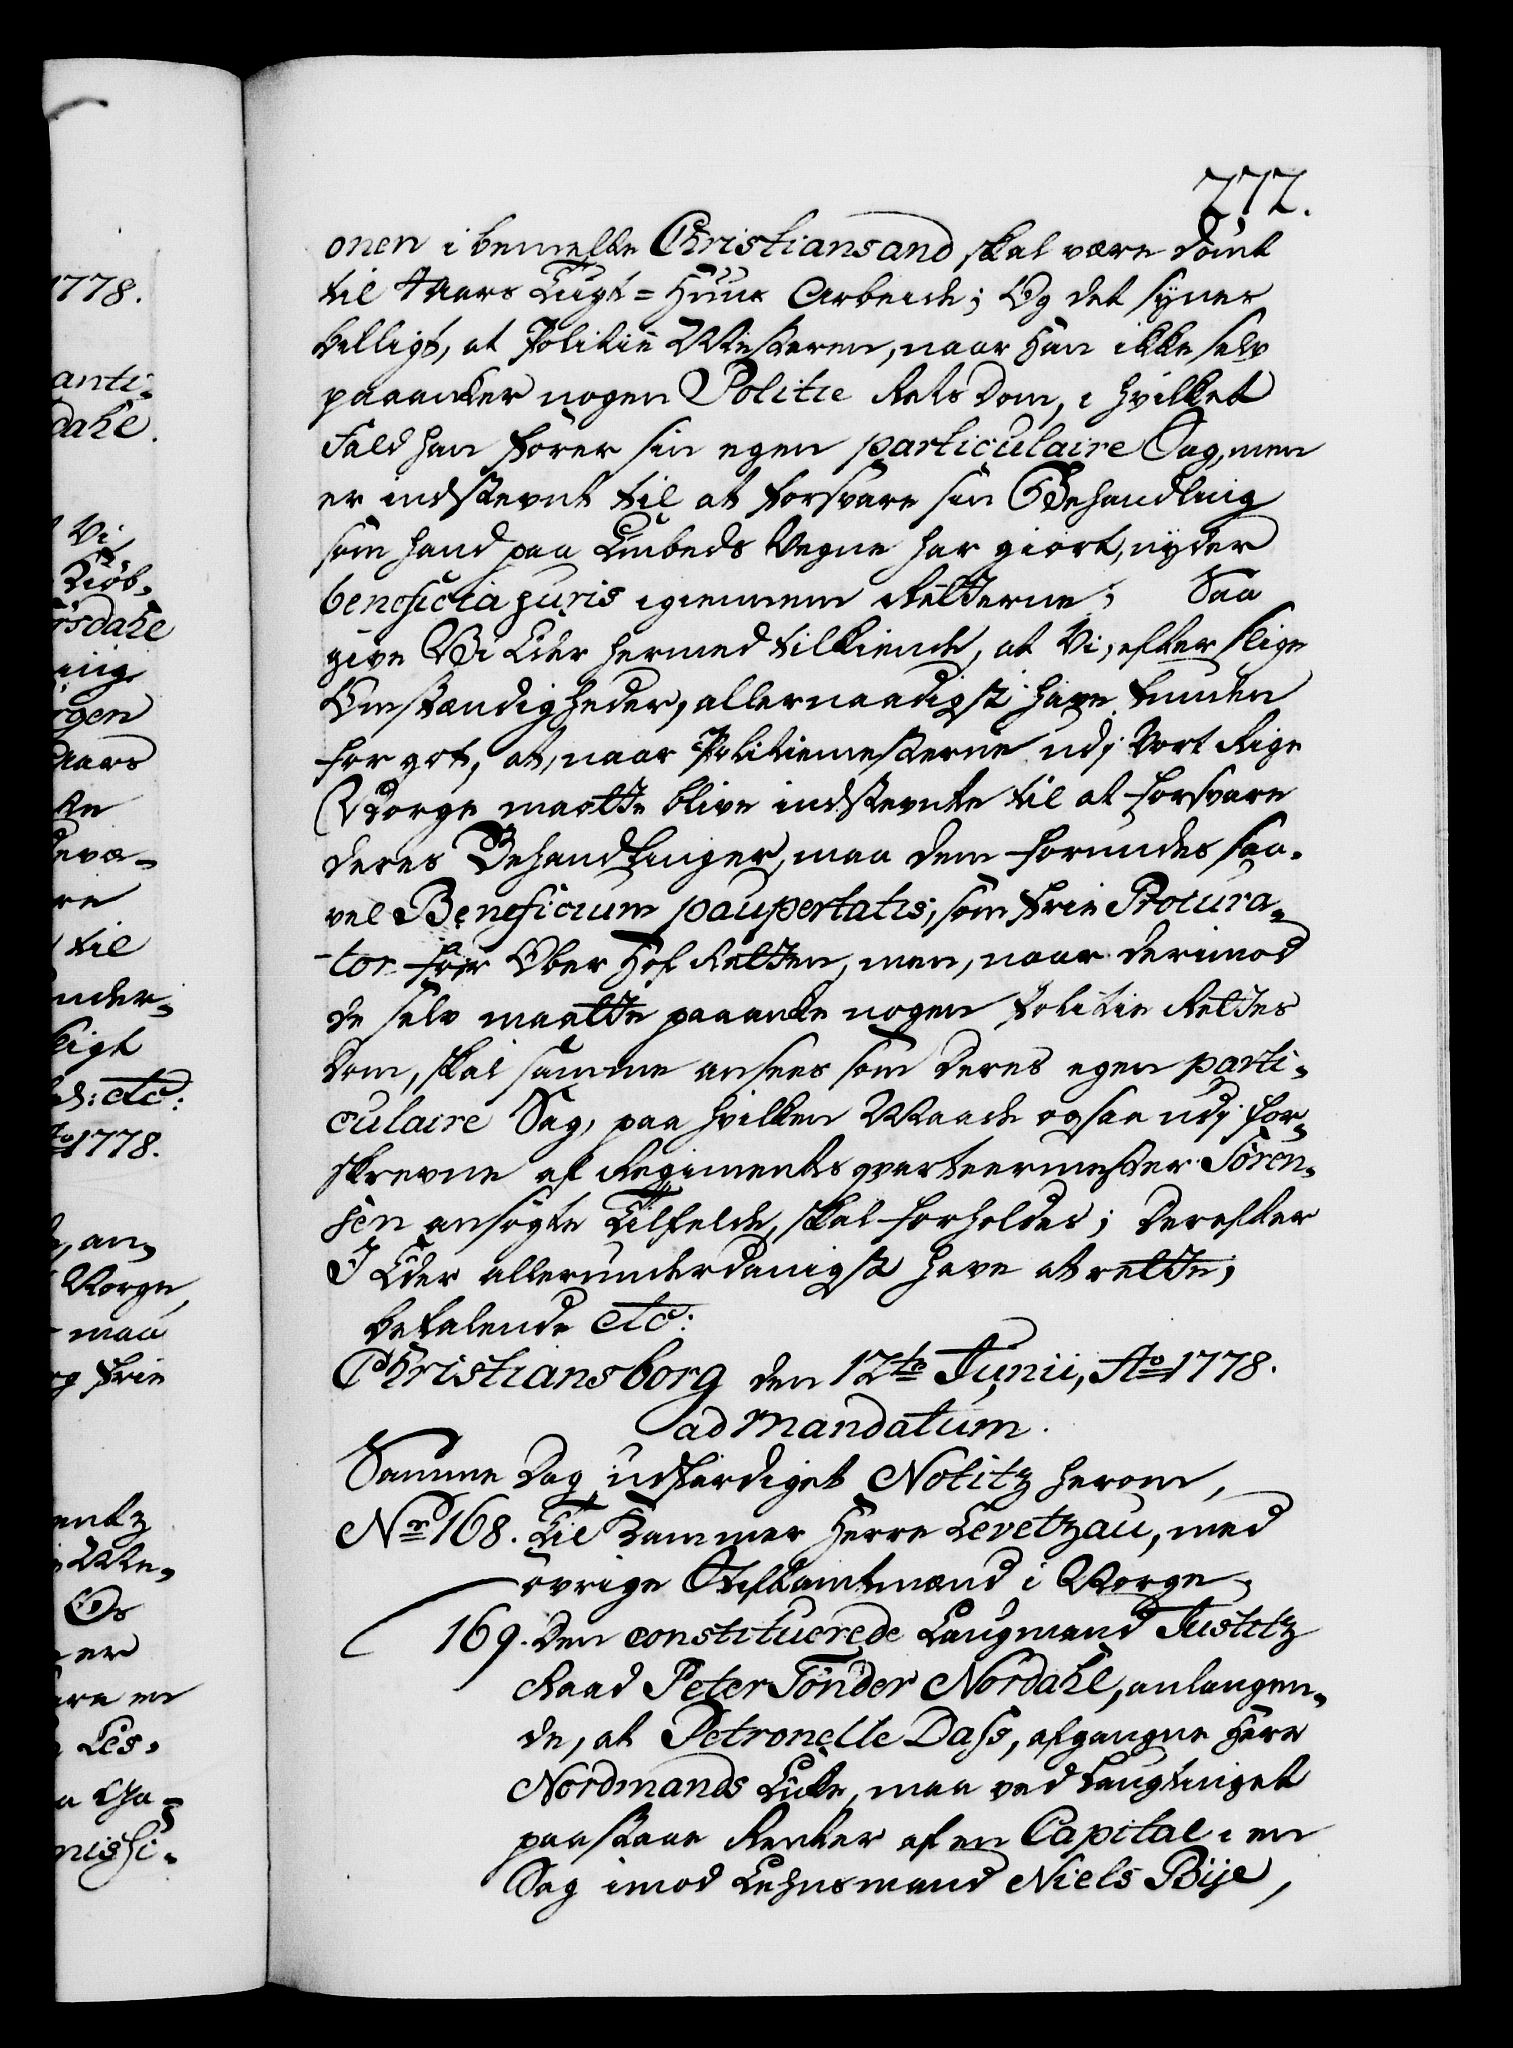 277.
onen i bemelte Christiansand, skal være dömt
til 4 Aars Tugt=Huus Arbeide; Og det synes
billigt, at Politie Mesteren, naar Han ikke selv
paaanker nogen Politie Rets Dom, i hvilket
Fald han förer sin egen particulaire Sag, men
er indstevnt til at forsvare sin Behandling
som hand paa Embeds Vegne har giort, nyder
beneficia juris igiennem Retterne; Saa
give Vi Eder hermed tilkiende, at Vi, efter slige
Omstændigheder, allernaadigst have funden
for got, at, naar Politiemesterne udj Vort Rige
Norge maatte blive indstevnte til at forsvare
deres Behandlinger, maa dem forundes saa-
vel Beneficium paupertatis, som frie Procura-
-tor for Ober Hof Retten, men, naar derimod
de selv maatte paaanke nogen Politie Rettes
Dom, skal samme ansees som deres egen parti-
culaire Sag, paa hvilken Maade ogsaa udj for-
skrevne af Regimentsqvarteermester Sören-
sen ansögte Tilfelde, skal forholdes; Derefter
I Eder allerunderdanigst have at rette,
befalende etc:
Christiansborg den 12te Junii, Ao 1778.
ad mandatum.
Samme Dag udfærdiget Notitz herom,
No 168. Til Kammer Herre Levetzau, med
övrige Stiftamtmænd i Norge-
169. Den constituerede Laugmand Justitz
Raad Peter Tönder Nordahl, anlangen-
de, at Petronelle Dass, afgangne Herr
Nordmands Enke, maa ved Laugtinget
paastaae Renter af en Capital i en
Sag imod Lehnsmand Niels Bije,
1778.
anti-
dahl.
Vi
Kiöb-
rsdahl
ning
rgen
Aars
til
nder-
ligt
etc:
1778.
an-
Norge,
maa
og frie
entz
Me-
Os
er
are en
Les-
missi-